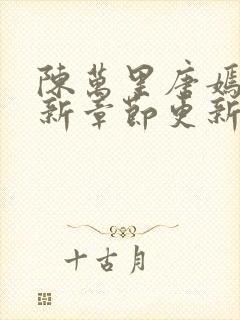 陳萬里唐嫣
新章節更新
十古月